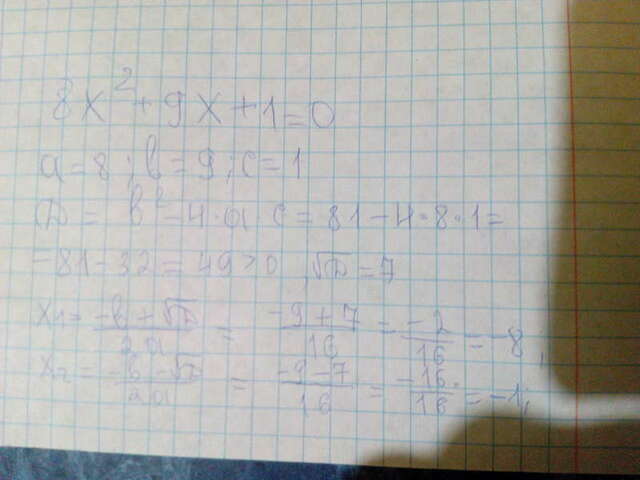 8x²+9x+1=0
a=8;b=9;c=1
D=b²-4·a·c=81-4·8·1=
=81-32=49>0, √D=7
x₁=(-b+√D)/2a=(-9+7)/16=(-2)/16=-8,
x₂=(-b-√D)/2a=(-9-7)/16=(-16)/16=-1,